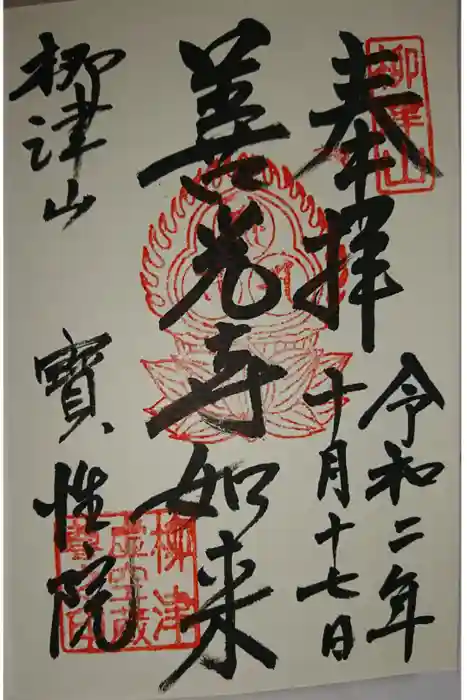 奉拝
令和二年
十月十七日
善光寺如来
柳津山
寳性院
柳津山
柳津
虚空蔵